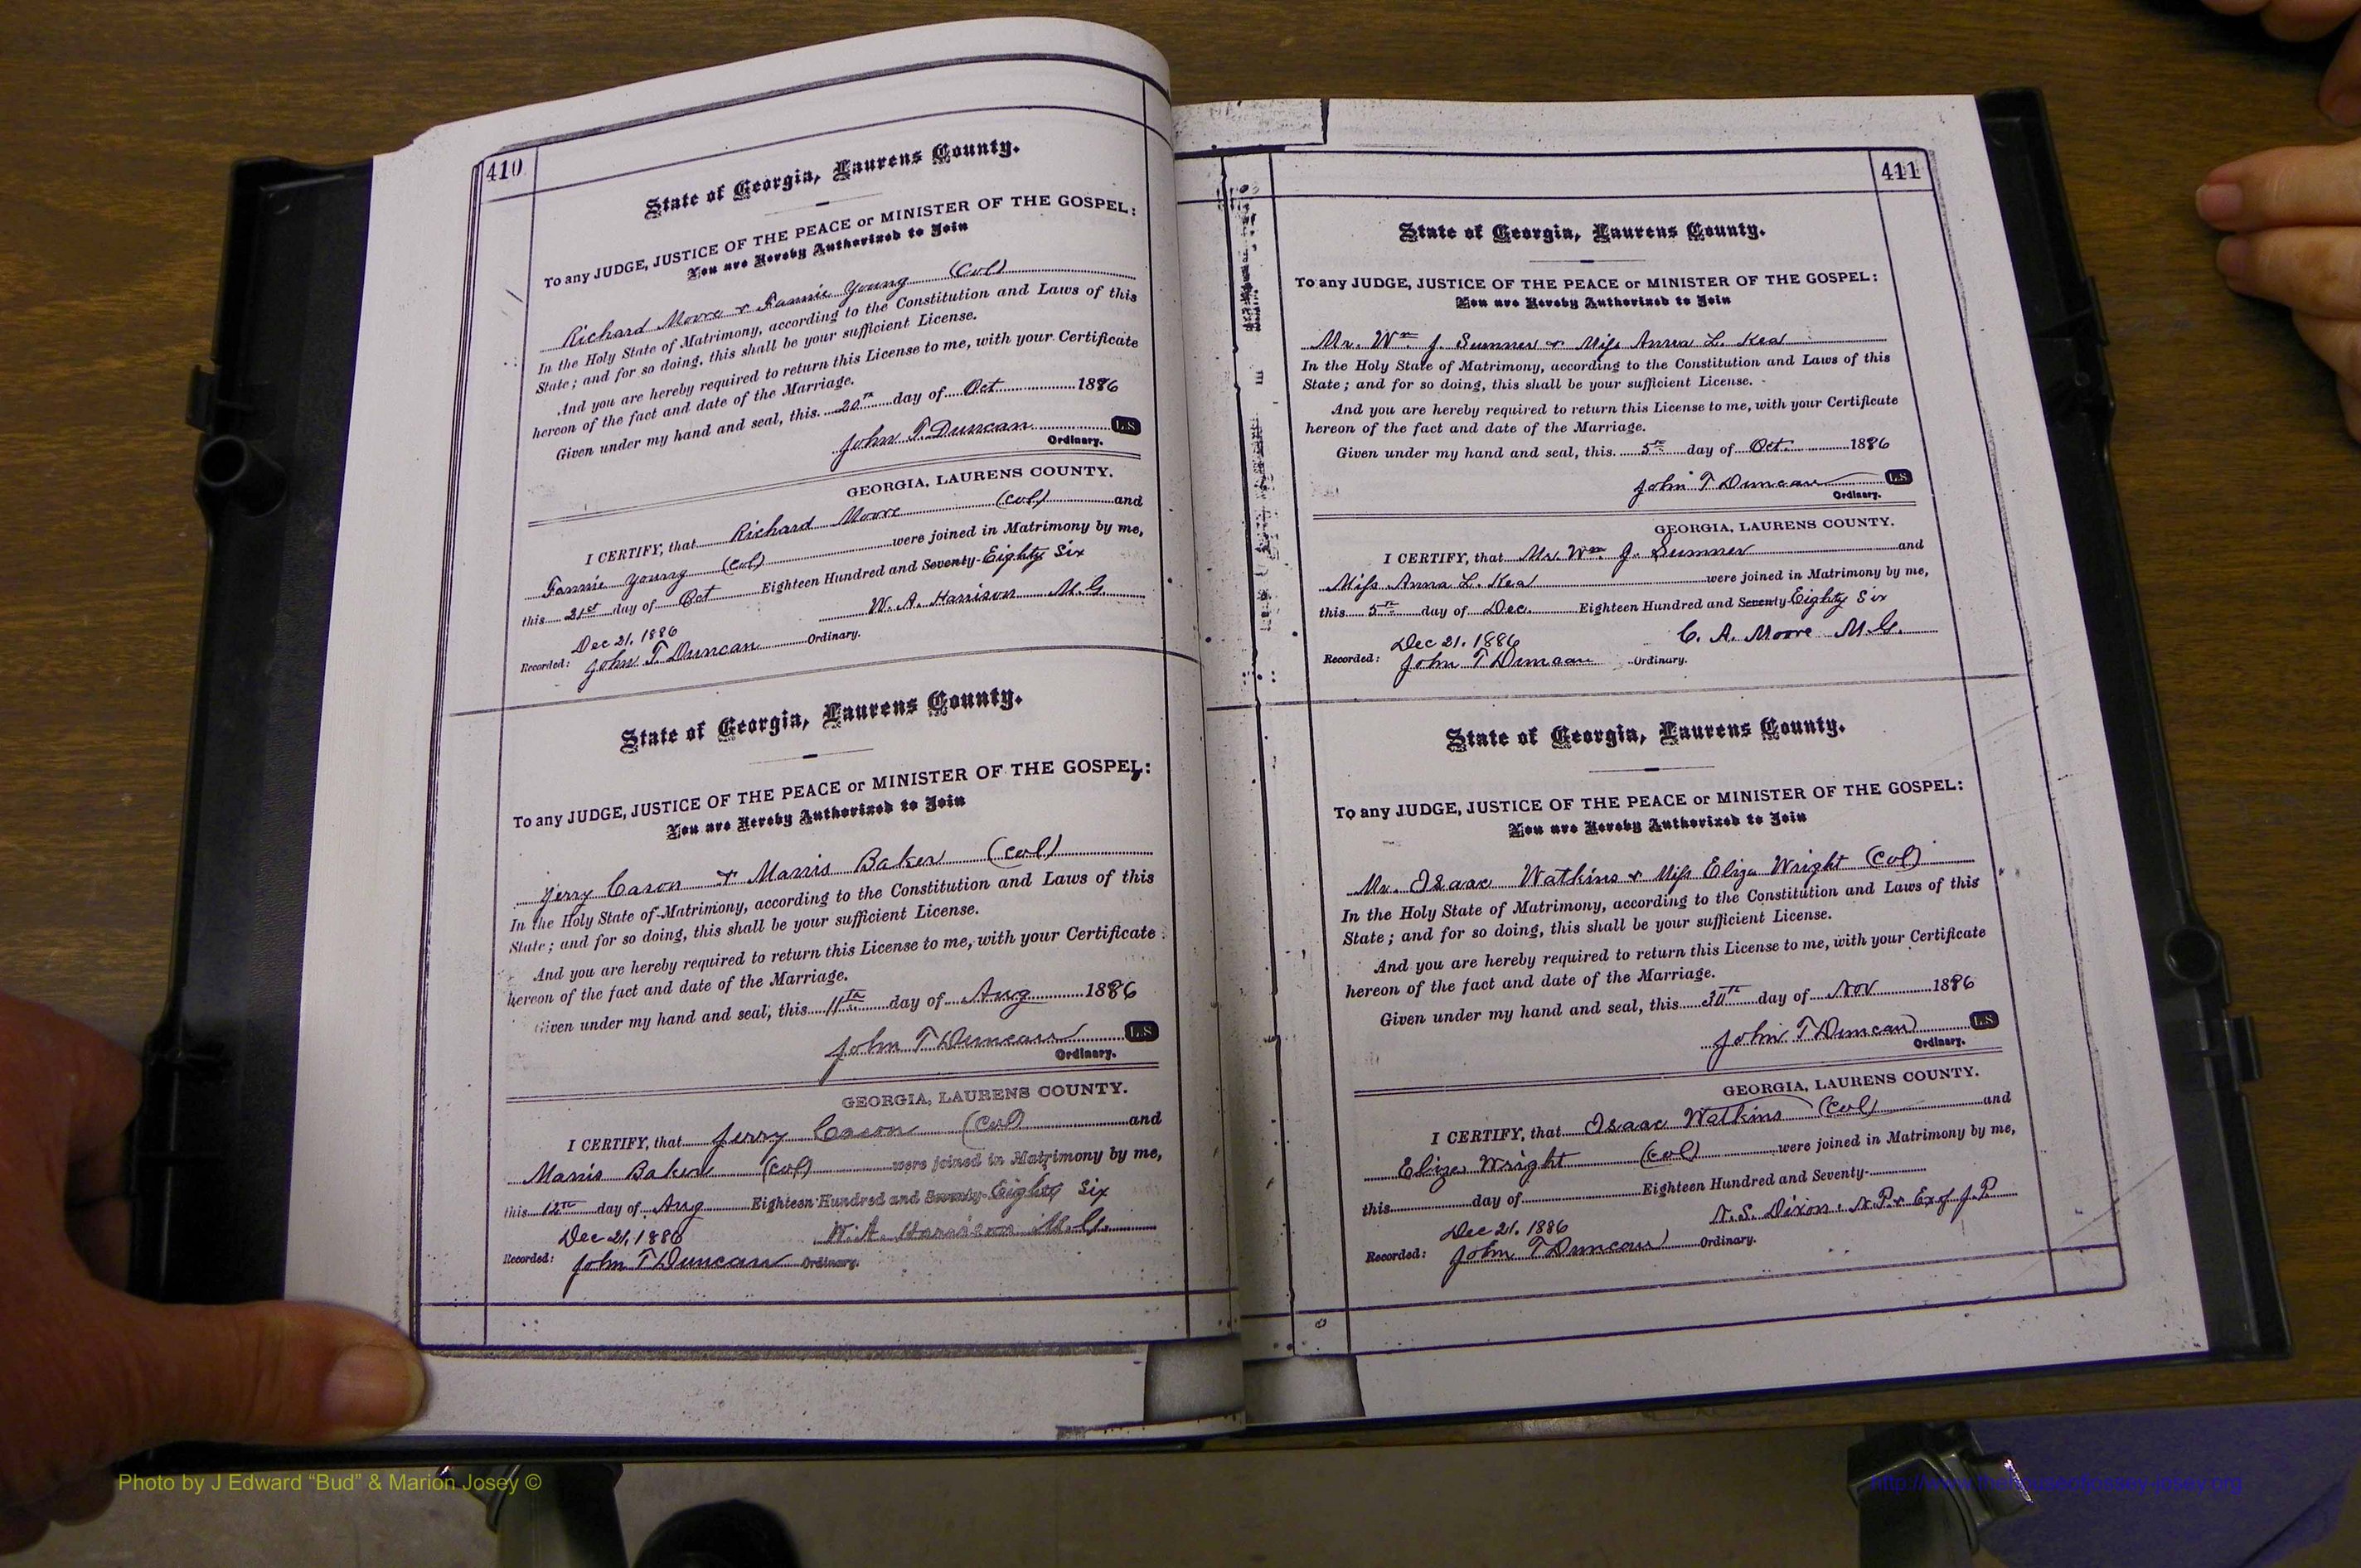 410
State of Georgia, Laurens County.
To any JUDGE, JUSTICE OF THE PEACE or MINISTER OF THE GOSPEL:
You are Hereby Authorized to Join
Richard Moore & Fannie Young (Col)
In the Holy State of Matrimony, according to the Constitution and Laws of this
State; and for so doing, this shall be your sufficient License.
And you are hereby required to return this License to me, with your Certificate
hereon of the fact and date of the Marriage.
Given under my hand and seal, this 20th day of Oct 1886
John T. Duncan L.S
Ordinary.
GEORGIA, LAURENS COUNTY.
I CERTIFY, that Richard Moore (Col) and
Fannie Young (Col) were joined in Matrimony by me,
this 21st day of Oct Eighteen Hundred and Seventy- Eighty Six
W. A. Harrison M.G.
Dec 21, 1886
Recorded: John T. Duncan Ordinary.
State of Georgia, Laurens County.
To any JUDGE, JUSTICE OF THE PEACE or MINISTER OF THE GOSPEL:
You are Hereby Authorized to Join
Jerry Cason & Marris Baker (Col)
In the Holy State of Matrimony, according to the Constitution and Laws of this
State; and for so doing, this shall be your sufficient License.
And you are hereby required to return this License to me, with your Certificate
hereon of the fact and date of the Marriage.
Given under my hand and seal, this 11th day of Aug 1886
John T Duncan L.S
Ordinary.
GEORGIA, LAURENS COUNTY.
I CERTIFY, that Jerry Cason (Col) and
Marris Baker (Col) were joined in Matrimony by me,
this 12th day of Aug Eighteen Hundred and Seventy- Eighty Six
W. A. Harrison M.G.
Dec 21, 1886
Recorded: John T Duncan Ordinary.
411
State of Georgia, Laurens County.
To any JUDGE, JUSTICE OF THE PEACE or MINISTER OF THE GOSPEL:
You are Hereby Authorized to Join
Mr. Wm J. Sumner & Miss Anna L. Kea
In the Holy State of Matrimony, according to the Constitution and Laws of this
State; and for so doing, this shall be your sufficient License.
And you are hereby required to return this License to me, with your Certificate
hereon of the fact and date of the Marriage.
Given under my hand and seal, this 5th day of Oct. 1886
John T Duncan L.S
Ordinary.
GEORGIA, LAURENS COUNTY.
I CERTIFY, that Mr. Wm J. Sumner and
Miss Anna L. Kea were joined in Matrimony by me,
this 5th day of Dec. Eighteen Hundred and Seventy- Eighty Six
C. A. Moore M.G.
Dec 21, 1886
Recorded: John T Duncan Ordinary.
State of Georgia, Laurens County.
To any JUDGE, JUSTICE OF THE PEACE or MINISTER OF THE GOSPEL:
You are Hereby Authorized to Join
Mr. Isaac Watkins & Miss Eliza Wright (Col)
In the Holy State of Matrimony, according to the Constitution and Laws of this
State; and for so doing, this shall be your sufficient License.
And you are hereby required to return this License to me, with your Certificate
hereon of the fact and date of the Marriage.
Given under my hand and seal, this 30th day of Nov 1886
John T Duncan L.S
Ordinary.
GEORGIA, LAURENS COUNTY.
I CERTIFY, that Isaac Watkins (Col) and
Eliza Wright (Col) were joined in Matrimony by me,
this day of Eighteen Hundred and Seventy-
N. S. Dixon. N.P. & Exof J.P
Dec 21, 1886
Recorded: John T Duncan Ordinary.
Photo by J Edward “Bud” & Marion Josey ©
http://www.thehouseofjossey-josey.org